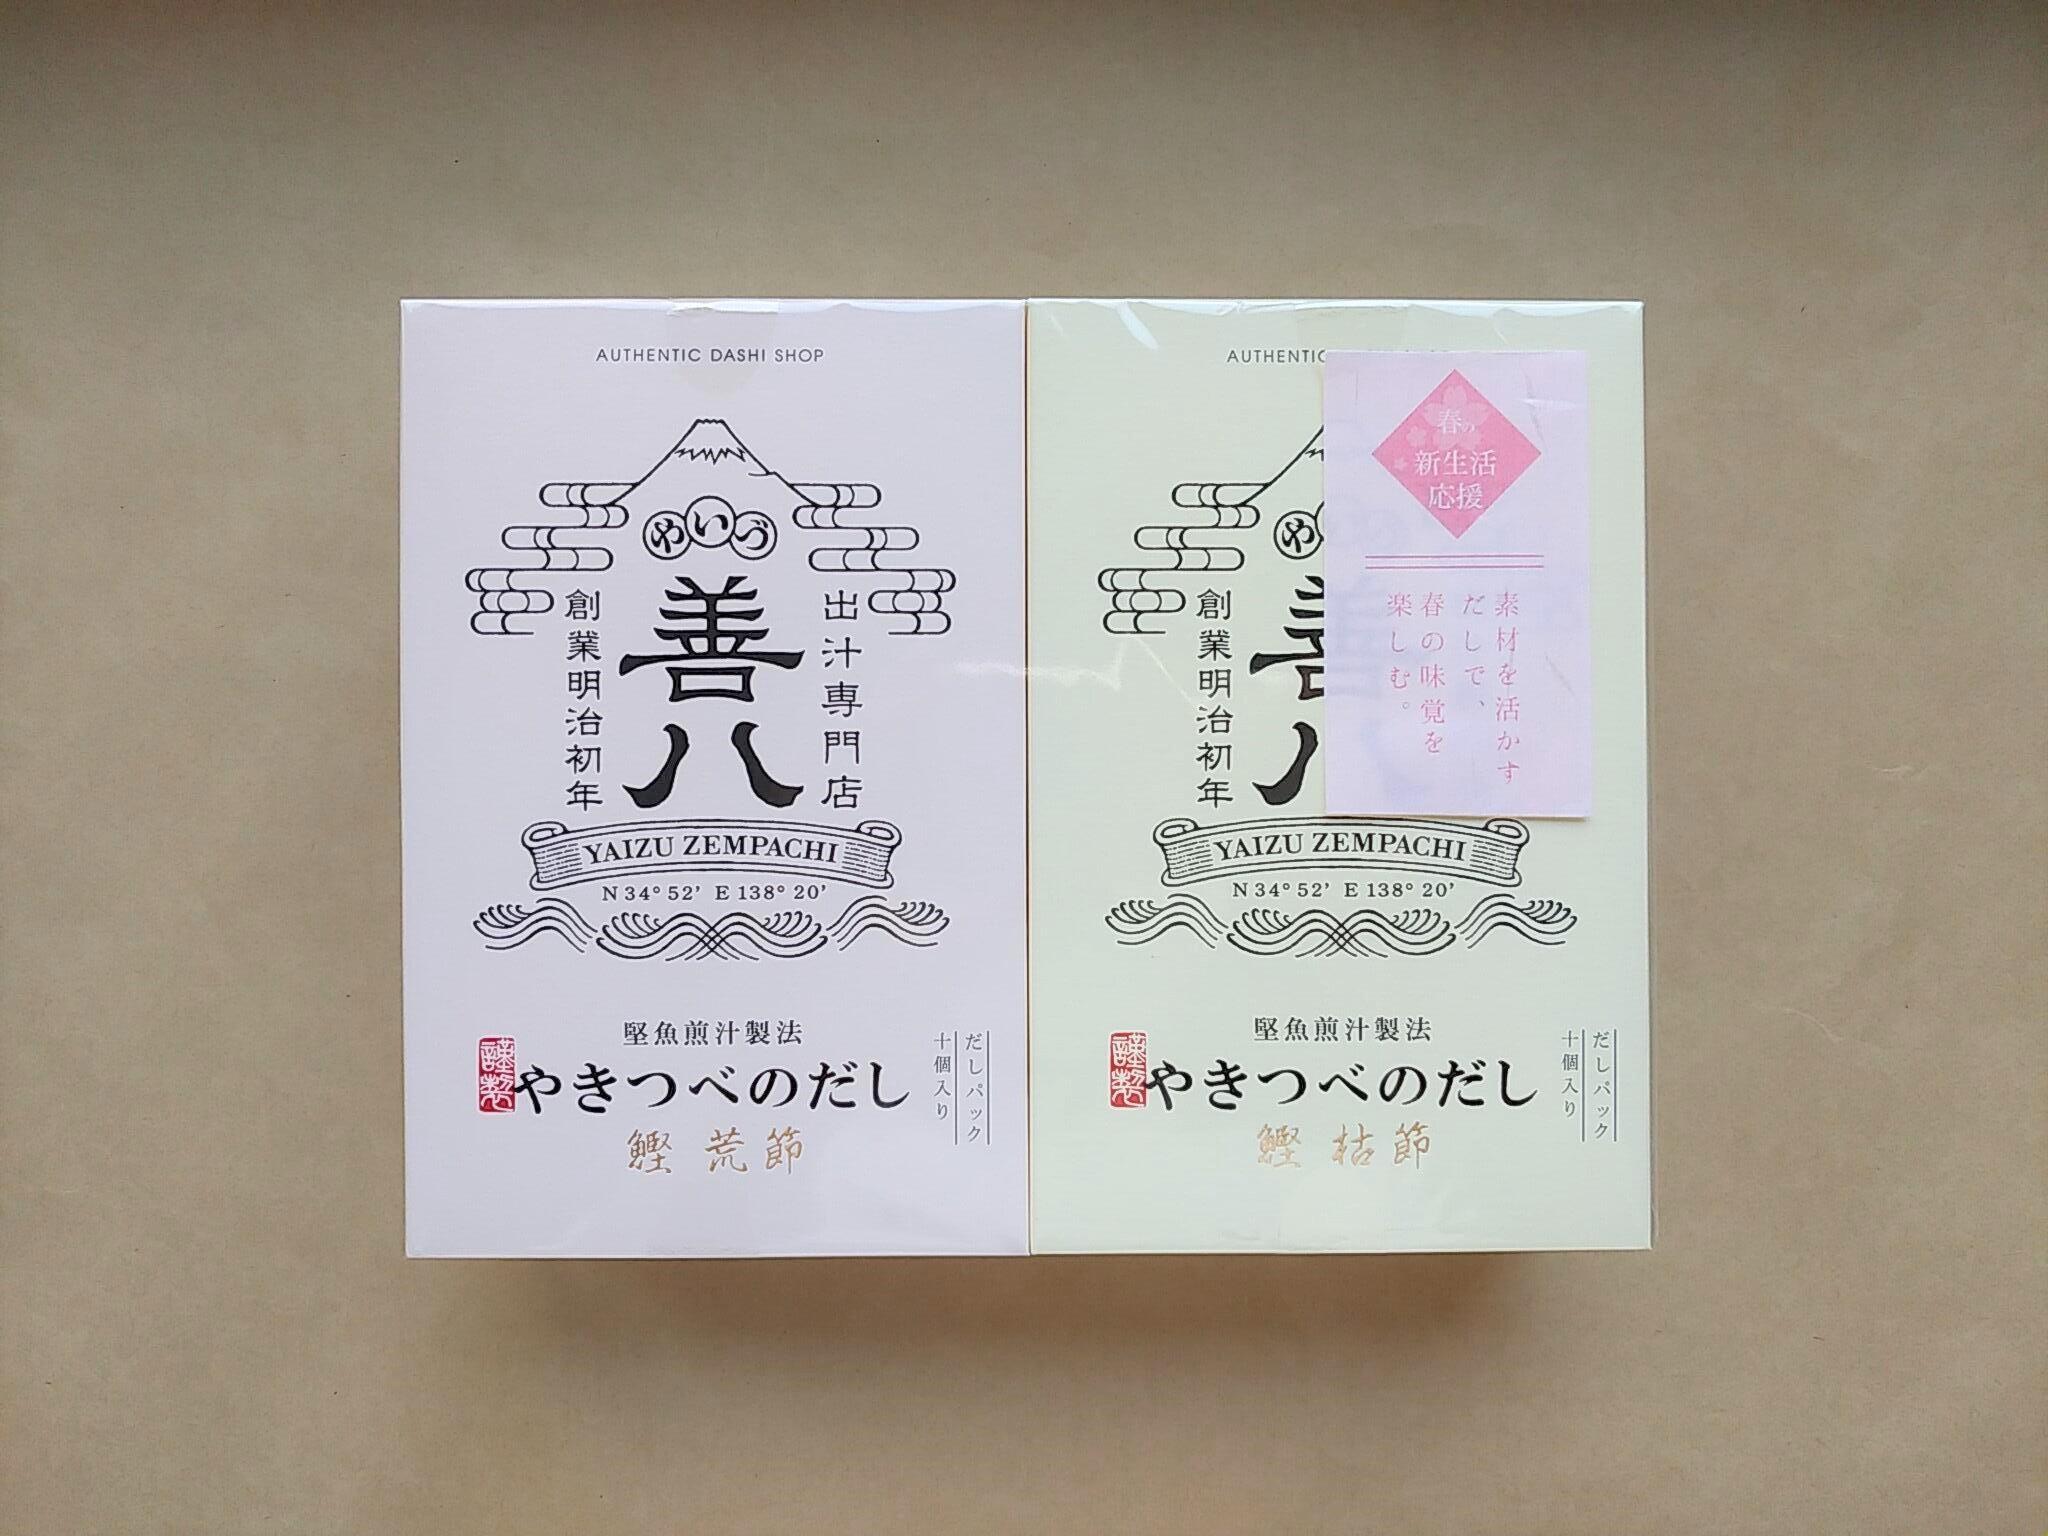 AUTHENTIC DASHI SHOP
やいづ
善八
出汁専門店
創業明治初年
YAIZU ZEMPACHI
N 34° 52’ E 138° 20’
堅魚煎汁製法
謹製
やきつべのだし
鰹 荒節
だしパック
十個入り
AUTHENTIC
や
創業明治初年
YAIZU ZEMPACHI
N 34° 52’ E 138° 20’
堅魚煎汁製法
謹製
やきつべのだし
鰹 枯節
だしパック
十個入り
春の
新生活
応援
素材を活かす
だしで、
春の味覚を
楽しむ。